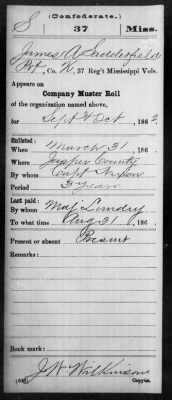 (Confederate.)
S 37 Miss.
James A
Pvt, Co. K, 37 Reg't Mississippi Vols.
Appears on
Company Muster Roll
of the organization named above,
for Sept & Oct, 1862.
Enlisted:
When March 31, 186
Where Jasper County
By whom Capt
Period 3 years
Last paid:
By whom Maj
To what time Aug 31, 186
Present or absent Present
Remarks:
Book mark:
J W Wilkinson
Copyist.